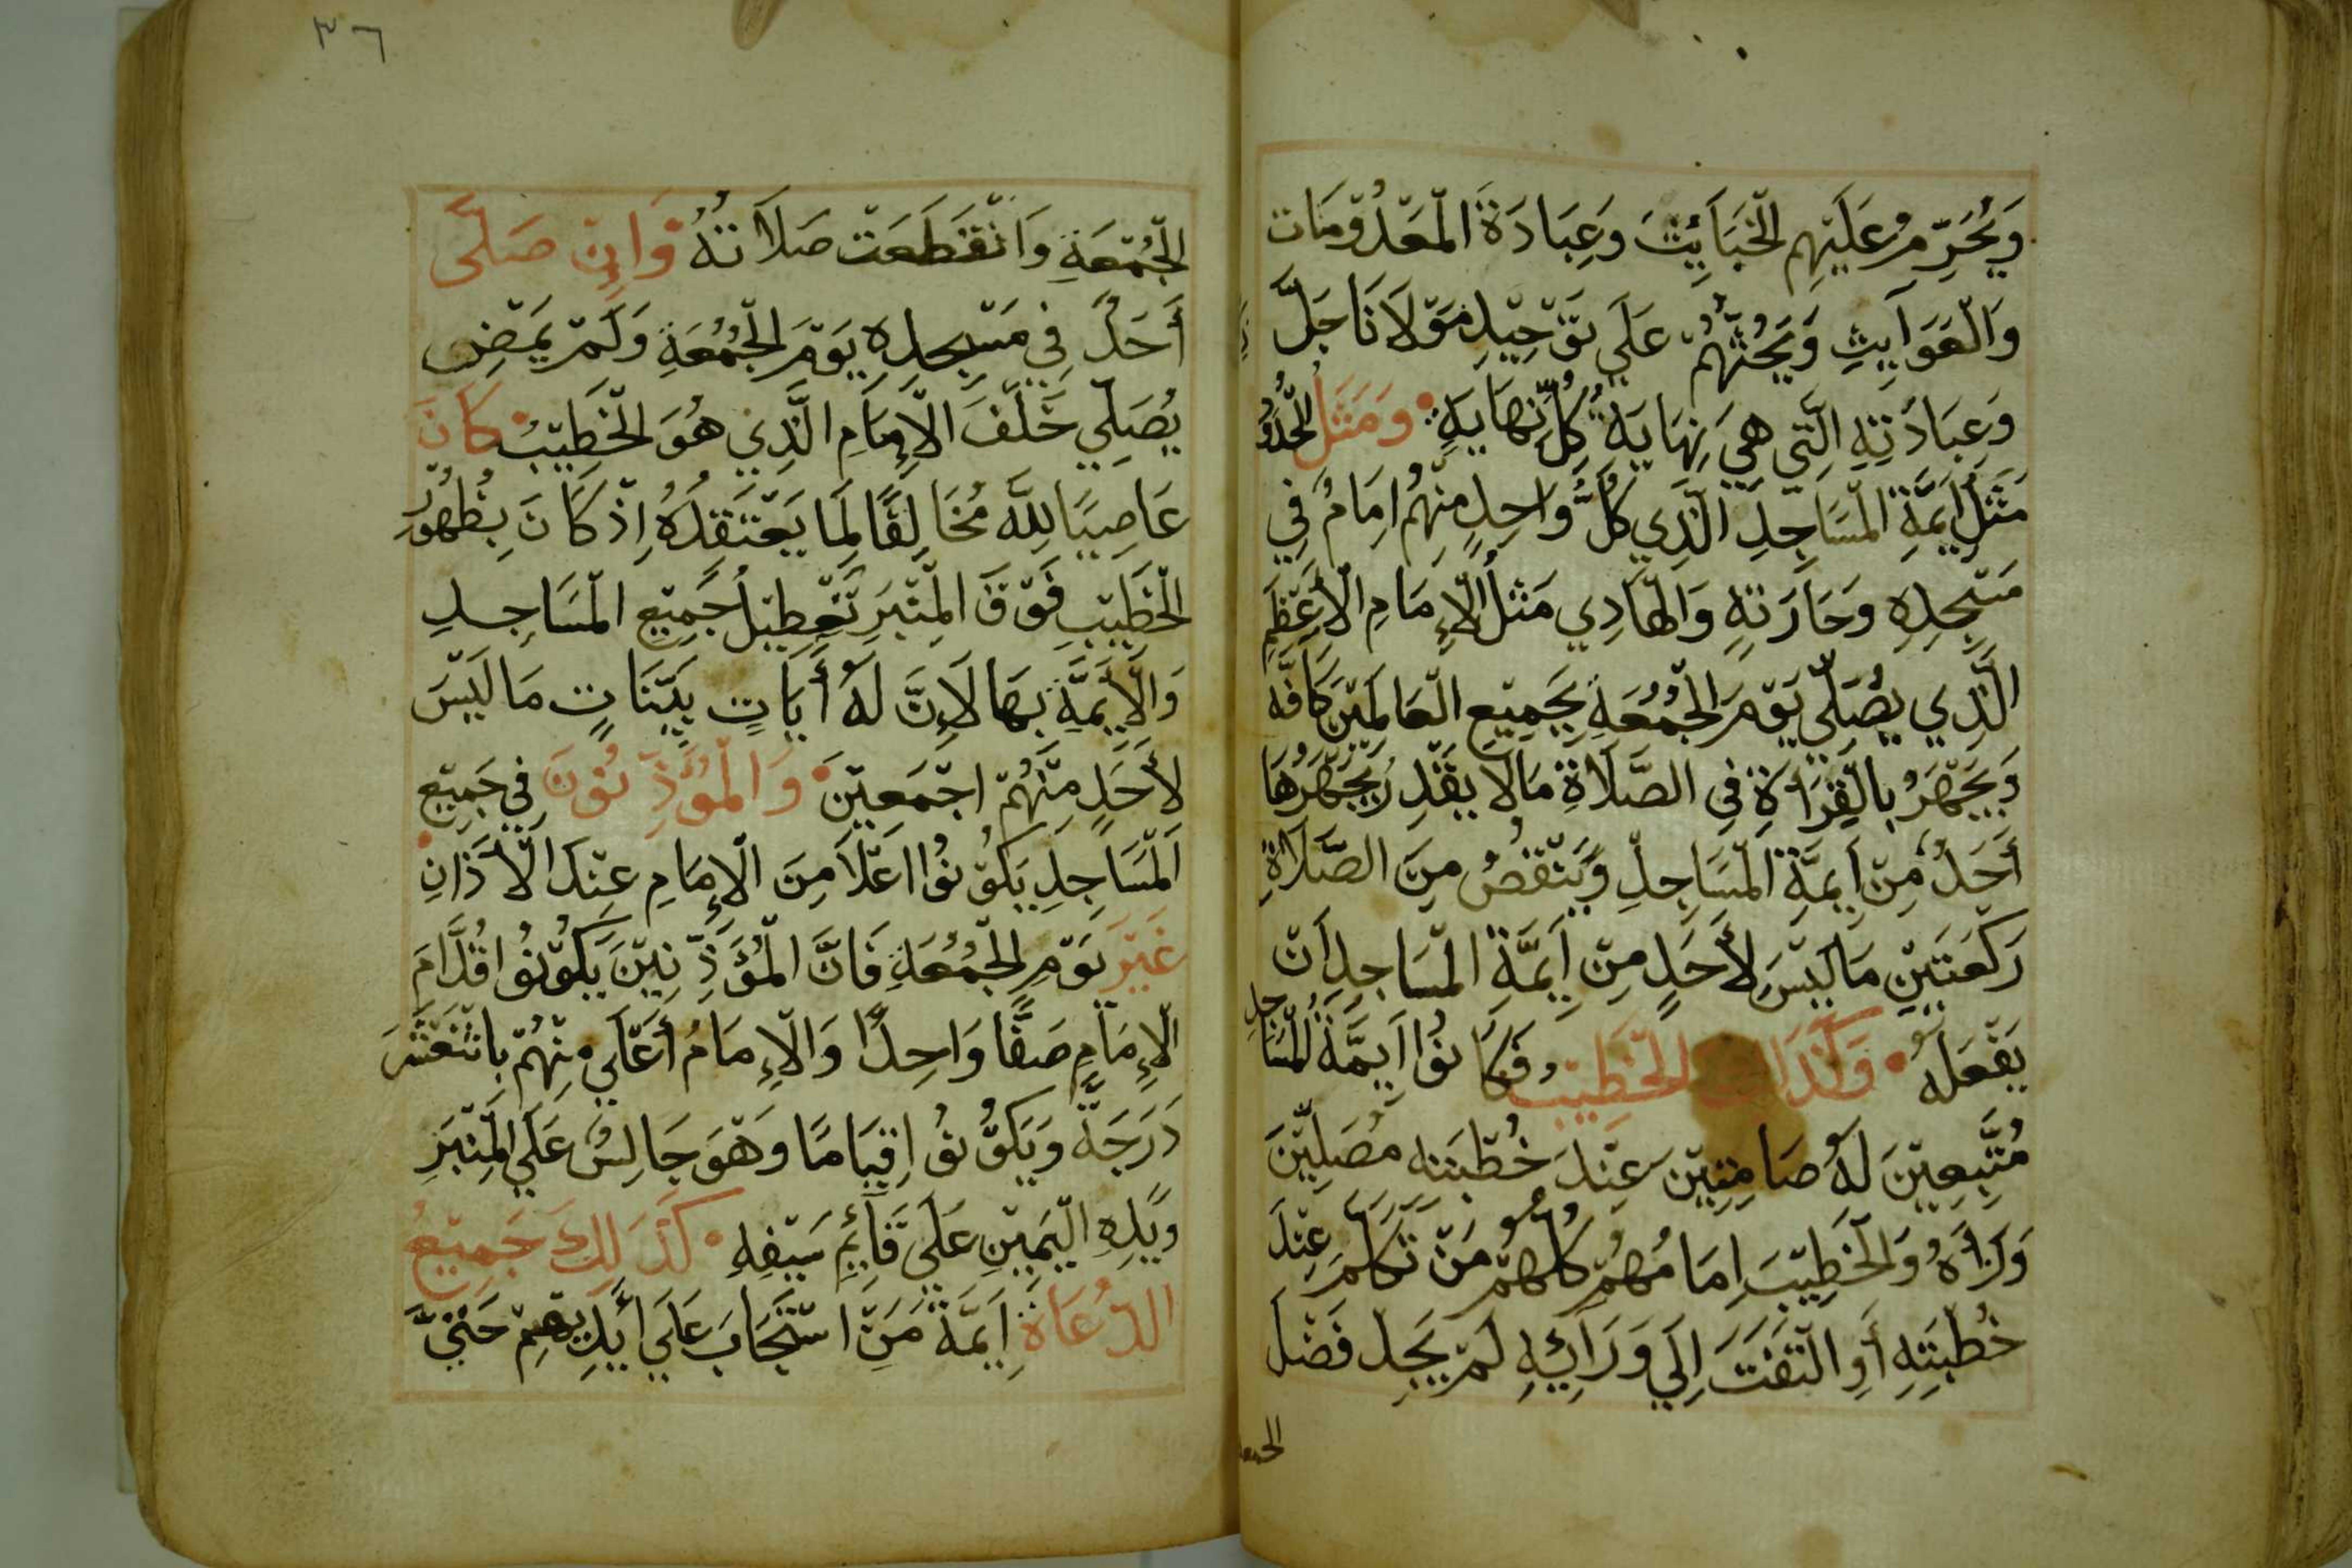 وَيُحَرِّمُ عَلَيْهِم الْخَبَآئِثَ وَعِبَادَةَ الْمَعْدُوْمَات
وَالْعَوَآبِثِ وَيَحُثُّهُمْ عَلَي تَوْحِيْدِ مَوْلَانَا جَلَّ
وَعِبَادَتِهِ الَّتِي هِيَ نِهَايَةُ كُلِّ نِهَايَةٍ وَمَثَلُ الْحُدُوْد
مَثَلُ أَيِمَّةِ الْمَسَاجِدِ الَّذِي كُلُّ وَاحِدٍ مِنْهُمُ امِامُ فِي
مَسْجِدِهِ وَحَارَتِهِ وَالْهَادِي مَثَلُ الْإِمَامِ الْأَعْظَمِ
الَّذِي يُصَلِّي يَوْمَ الْجُمُعَةِ بِجَمِيْعِ الْعَالَمِيْنَ كَافَّة
وَيَجْهَرُ بِالْقِرَاةِ فِي الصَّلَاةِ مَا لَا يَقْدِرُ يَجْهَرُهَا
أَحَدٌ مِنْ أَيِمَّةِ الْمَسَاجِدِ وَيَنْقُصُ مِنَ الصَّلَاةِ
رَكْعَتَيْنِ مَا لَيْسَ لِأَحَدٍ مِنْ أَيِمَّةِ الْمَسَاجِدِ أَنْ
يَفْعَلَهُ وَكَذَالِكَ الْخَطِيْبُ وَكَانُوْا أَيِمَّةُ الْمَسَاجِدِ
مُتَّبِعِيْنَ لَهُ صَامِتِيْنَ عِنْدَ خُطْبَتِهِ مُصَلِيِّيْنَ
وَرَاَهُ وَالْخَطِيْبَ اِمَامُهُمْ كُلُّهُمْ مَنْ تَكَلَّمَ عِنْدَ
خُطْبَتِهِ أَوِ الْتَفَتَ اِلَي وَرَآيِهِ لَمْ يَجِدْ فَضْلَ
الجمعة
٣٦
الْجُمْعَةِ وَانْقَطَعَتْ صَلَاتُهُ وَاِنْ صَلَّى
أَحَدٌ فِي مَسْجِدِهِ يَوْمَ الْجُمُعَةِ وَلَمْ يَمْضِ
يُصَلِّي خَلْفَ الْإِمَامِ الَّذِي هُوَ الْخَطِيْبُ كَانَ
عَاصِيًا لِلَّهِ مُخَالِفًا لِمَا يَعْتَقِدُهُ اِذْ كَانَ بِظُهُوْرِ
الْخَطِيْبِ فَوْقَ الْمِنْبَرِ تَعْطِيْلُ جَمِيْعِ الْمَسَاجِدِ
وَالْأَيِمَّةِ بِهَا لَإِنَّ لَهُ أَيَاتٍ بَيِّنَاتٍ مَا لَيْسَ
لِأَحَدٍ مِنْهُمْ اجْمَعِيْنَ وَالْمُؤَذِّنُوْنَ فِي جَمِيْعِ
الْمَسَاجِدِ يَكُوْنُوْا اَعْلَا مِنَ الْإِمَامِ عِنْدَ الْأَذَانِ
غَيْرَ يَوْمِ الْجُمُعَةِ فَانَّ الْمُؤَذِّنِيْنَ يَكُوْنُوْا قُدَّامَ
الْإِمَامِ صَفًّا وَاحِدًا وَالْإِمَامُ أَعْلَي مِنْهُمْ بِاثْنَعْشَرَ
دَرَجَةً وَيَكُوْنُوْ اقِيَامًا وَهْوَ جَالِسٌ عَلَي الْمِنْبَرِ
وَيَدِهِ الْيَمِيْنِ عَلَي قَآئِمِ سَيْفِهِ كَذَلِكَ جَمِيْعُ
الدُّعَاةِ أَيِمَّةُ مَنِ اسْتَجَابَ عَلَي أَيْدِيْهِمْ حَتَّيَ